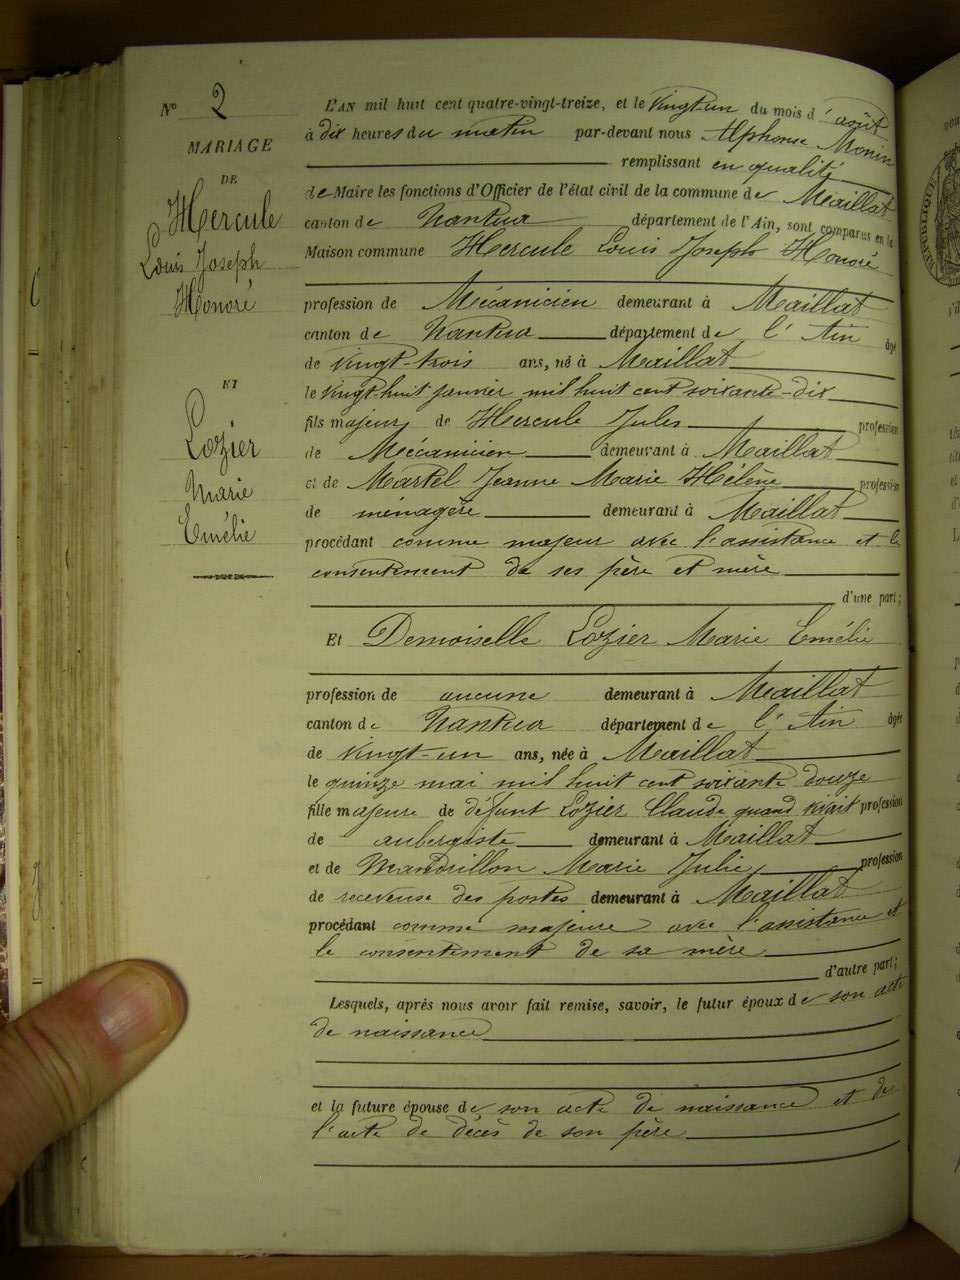 N° 2
MARIAGE
DE
Hercule
Louis Joseph
Honoré
ET
Lozier
Marie
Emélie
L'AN mil huit cent quatre-vingt-treize, et le vingt-un du mois d'août
à dix heures du matin par-devant nous Alphonse Monin
remplissant en qualité
de Maire les fonctions d'Officier de l'état civil de la commune de Maillat
canton de Nantua département de l'Ain, sont comparus en la
Maison commune Hercule Louis Joseph Honoré
profession de Mécanicien demeurant à Maillat
canton de Nantua département de l'Ain âgé
de vingt-trois ans, né à Maillat
le vingt-huit janvier mil huit cent soixante-dix
fils majeur de Hercule Jules profession
de Mécanicien demeurant à Maillat
et de Martel Jeanne Marie Hélène profession
de ménagère demeurant à Maillat
procédant comme majeur avec l'assistance et le
consentement de ses père et mère
d'une part;
Et Demoiselle Lozier Marie Emélie
profession de aucune demeurant à Maillat
canton de Nantua département de l'Ain âgée
de vingt-un ans, née à Maillat
le quinze mai mil huit cent soixante douze
fille majeure de défunt Lozier Claude quand vivait profession
de aubergiste demeurant à Maillat
et de Mandrillon Marie Julie profession
de receveuse des postes demeurant à Maillat
procédant comme majeure avec l'assistance et
le consentement de sa mère
d'autre part;
Lesquels, après nous avoir fait remise, savoir, le futur époux de son acte
de naissance
et la future épouse de son acte de naissance et de
l'acte de décès de son père